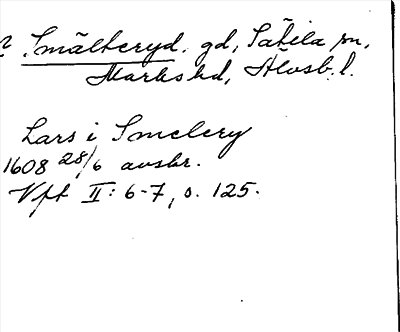 Smälteryd. gd, Sätila sn,
Marks hd, Älvsb. l.
Lars i Smelery
1608 28/6 avskr.
Vft II: 6-7, s. 125.